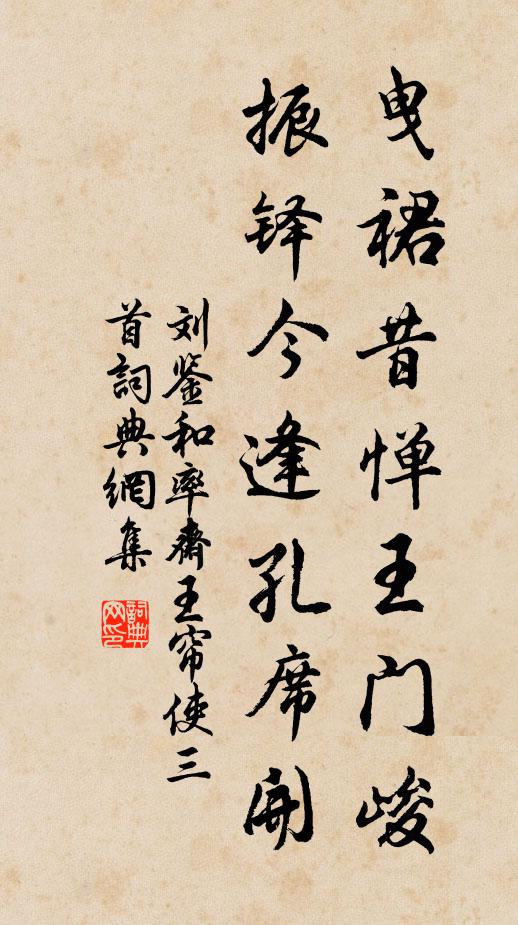 曳裙昔惮王门峻
振铎今逢孔席開
刘鉴和率齋王帘使三
首詞典網集
詞典网印